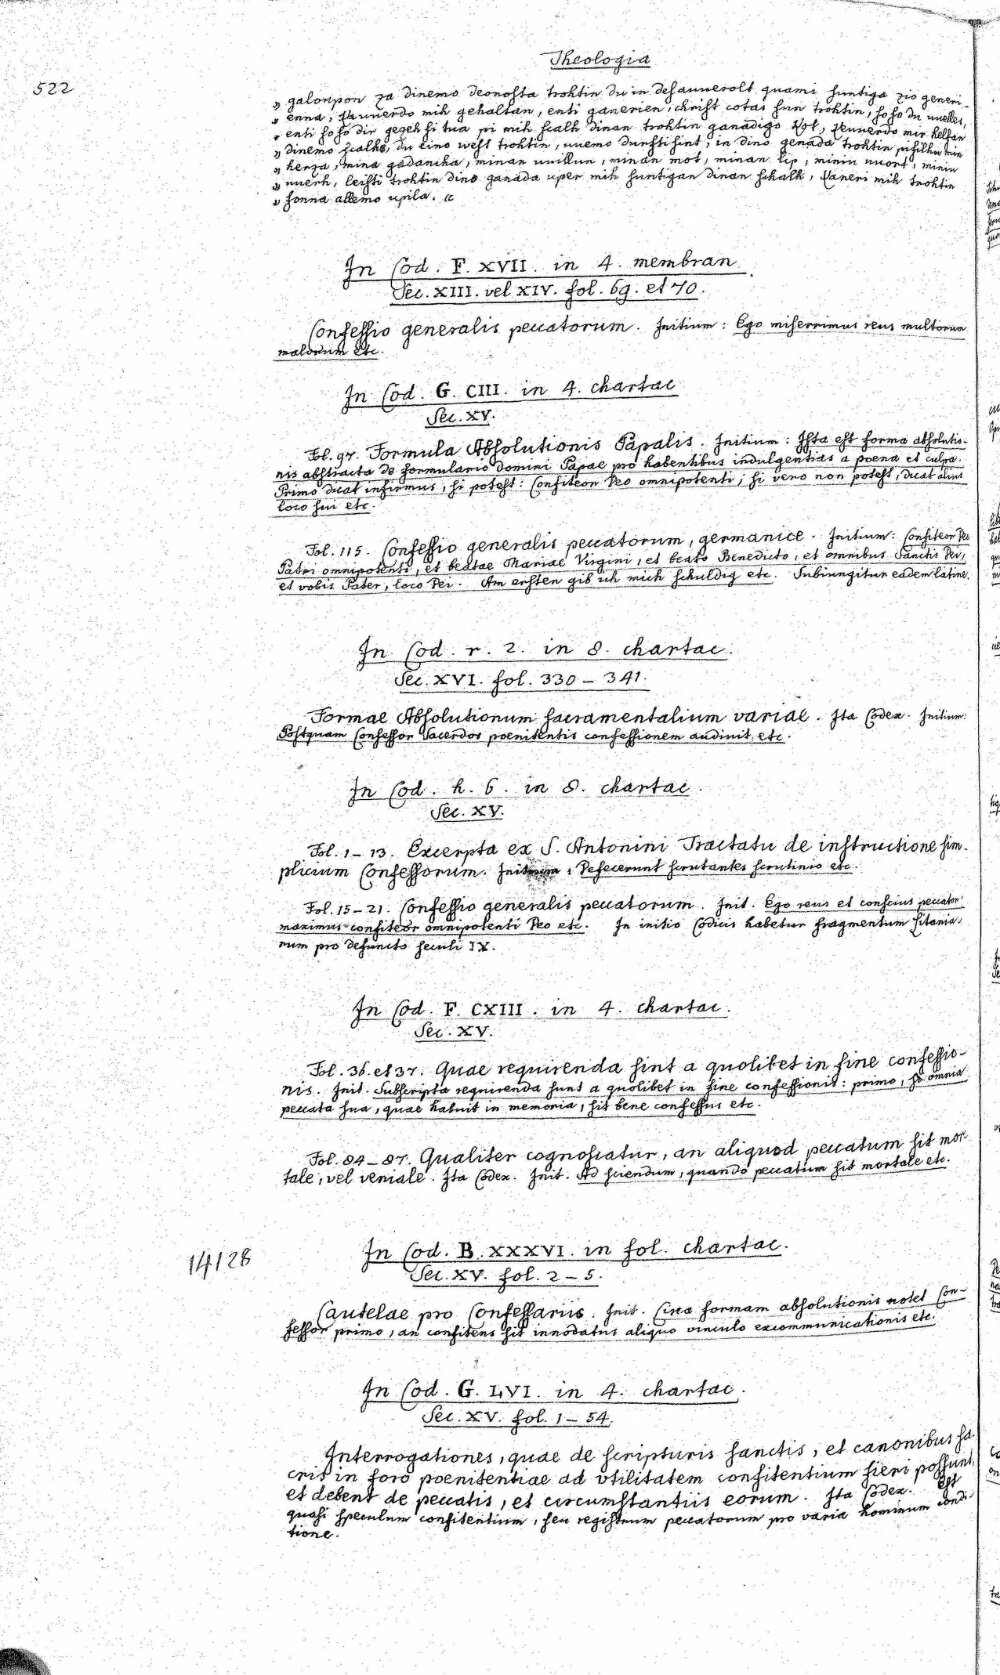 Theologia
522
" galoupon za dinemo deonosta trohtin du in desauuerolt quami suntiga zio generi-
" enna, kauuerdo mih gehaltan, enti ganerien, christ cotas sun trohtin, so so du uuelles,
" enti so so dir gezeh si tua pi mih scalh dinan trohtin ganadigo Kot, kauuerdo mir helfan
" dinemo scalhe, du eino uuest trohtin, uuemo durfti sint, in dino genada trohtin pifilhu min
" herza, mina gadancha, minan uuillun, minan mot, minan lip, miniu uuort, miniu
" uuerh, leisti trohtin dino ganada uper mih suntigan dinan scalh, kaneri mih trohtin
" fonna allemo upila. cc
In Cod. F. XVII. in 4. membran.
Sec. XIII. vel XIV. fol. 69. et 70.
Confessio generalis peccatorum. Initium: Ego miserrimus reus multorum
malorum etc.
In Cod. G. CIII. in 4. chartac
Sec. XV.
Fol. 97. Formula Absolutionis Papalis. Initium: Ista est forma absolutio-
nis abstracta de formulario domini Papae pro habentibus indulgentias a poena et culpa.
Primo dicat infirmus, si potest: Confiteor Deo omnipotenti; si vero non potest, dicat alius
loco sui etc.
Fol. 115. Confessio generalis peccatorum, germanice. Initium: Confiteor Deo
Patri omnipotenti, et beatae Mariae Virgini, et beato Benedicto, et omnibus Sanctis Dei,
et vobis Pater, loco Dei. Am ersten gib ich mich schuldig etc. Subiungitur eadem latine.
In Cod. r. 2. in 8. chartac.
Sec. XVI. fol. 330 – 341.
Formae Absolutionum sacramentalium variae. Ita Codex. Initium:
Postquam Confessor Sacerdos poenitentis confessionem audivit, etc.
In Cod. h. 6. in 8. chartac.
Sec. XV.
Fol. 1 – 13. Excerpta ex S. Antonini Tractatu de instructione sim-
plicium Confessorum. Initium: Defecerunt scrutantes scrutinio etc.
Fol. 15 – 21. Confessio generalis peccatorum. Init. Ego reus et conscius peccator
maximus confiteor omnipotenti Deo etc. In initio Codicis habetur fragmentum Litania-
rum pro defuncto seculi IX.
In Cod. F. CXIII. in 4. chartac.
Sec. XV.
Fol. 36. et 37. Quae requirenda sint a quolibet in fine confessio-
nis. Init. Subscripta requirenda sunt a quolibet in fine confessionis: primo, si omnia
peccata sua, quae habuit in memoria, sit bene confessus etc.
Fol. 84 – 87. Qualiter cognoscatur, an aliquod peccatum sit mor-
tale, vel veniale. Ita Codex. Init. Ad sciendum, quando peccatum sit mortale etc.
14128
In Cod. B. XXXVI. in fol. chartac.
Sec. XV. fol. 2 – 5.
Cautelae pro Confessariis. Init. Circa formam absolutionis notet Con-
fessor primo, an confitens sit innodatus aliquo vinculo excommunicationis etc.
In Cod. G. LVI. in 4. chartac.
Sec. XV. fol. 1 – 54.
Interrogationes, quae de scripturis sanctis, et canonibus sa-
cris in foro poenitentiae ad vtilitatem confitentium fieri possunt,
et debent de peccatis, et circumstantiis eorum. Ita Codex. Est
quasi speculum confitentium, seu registrum peccatorum pro varia hominum condi-
tione.